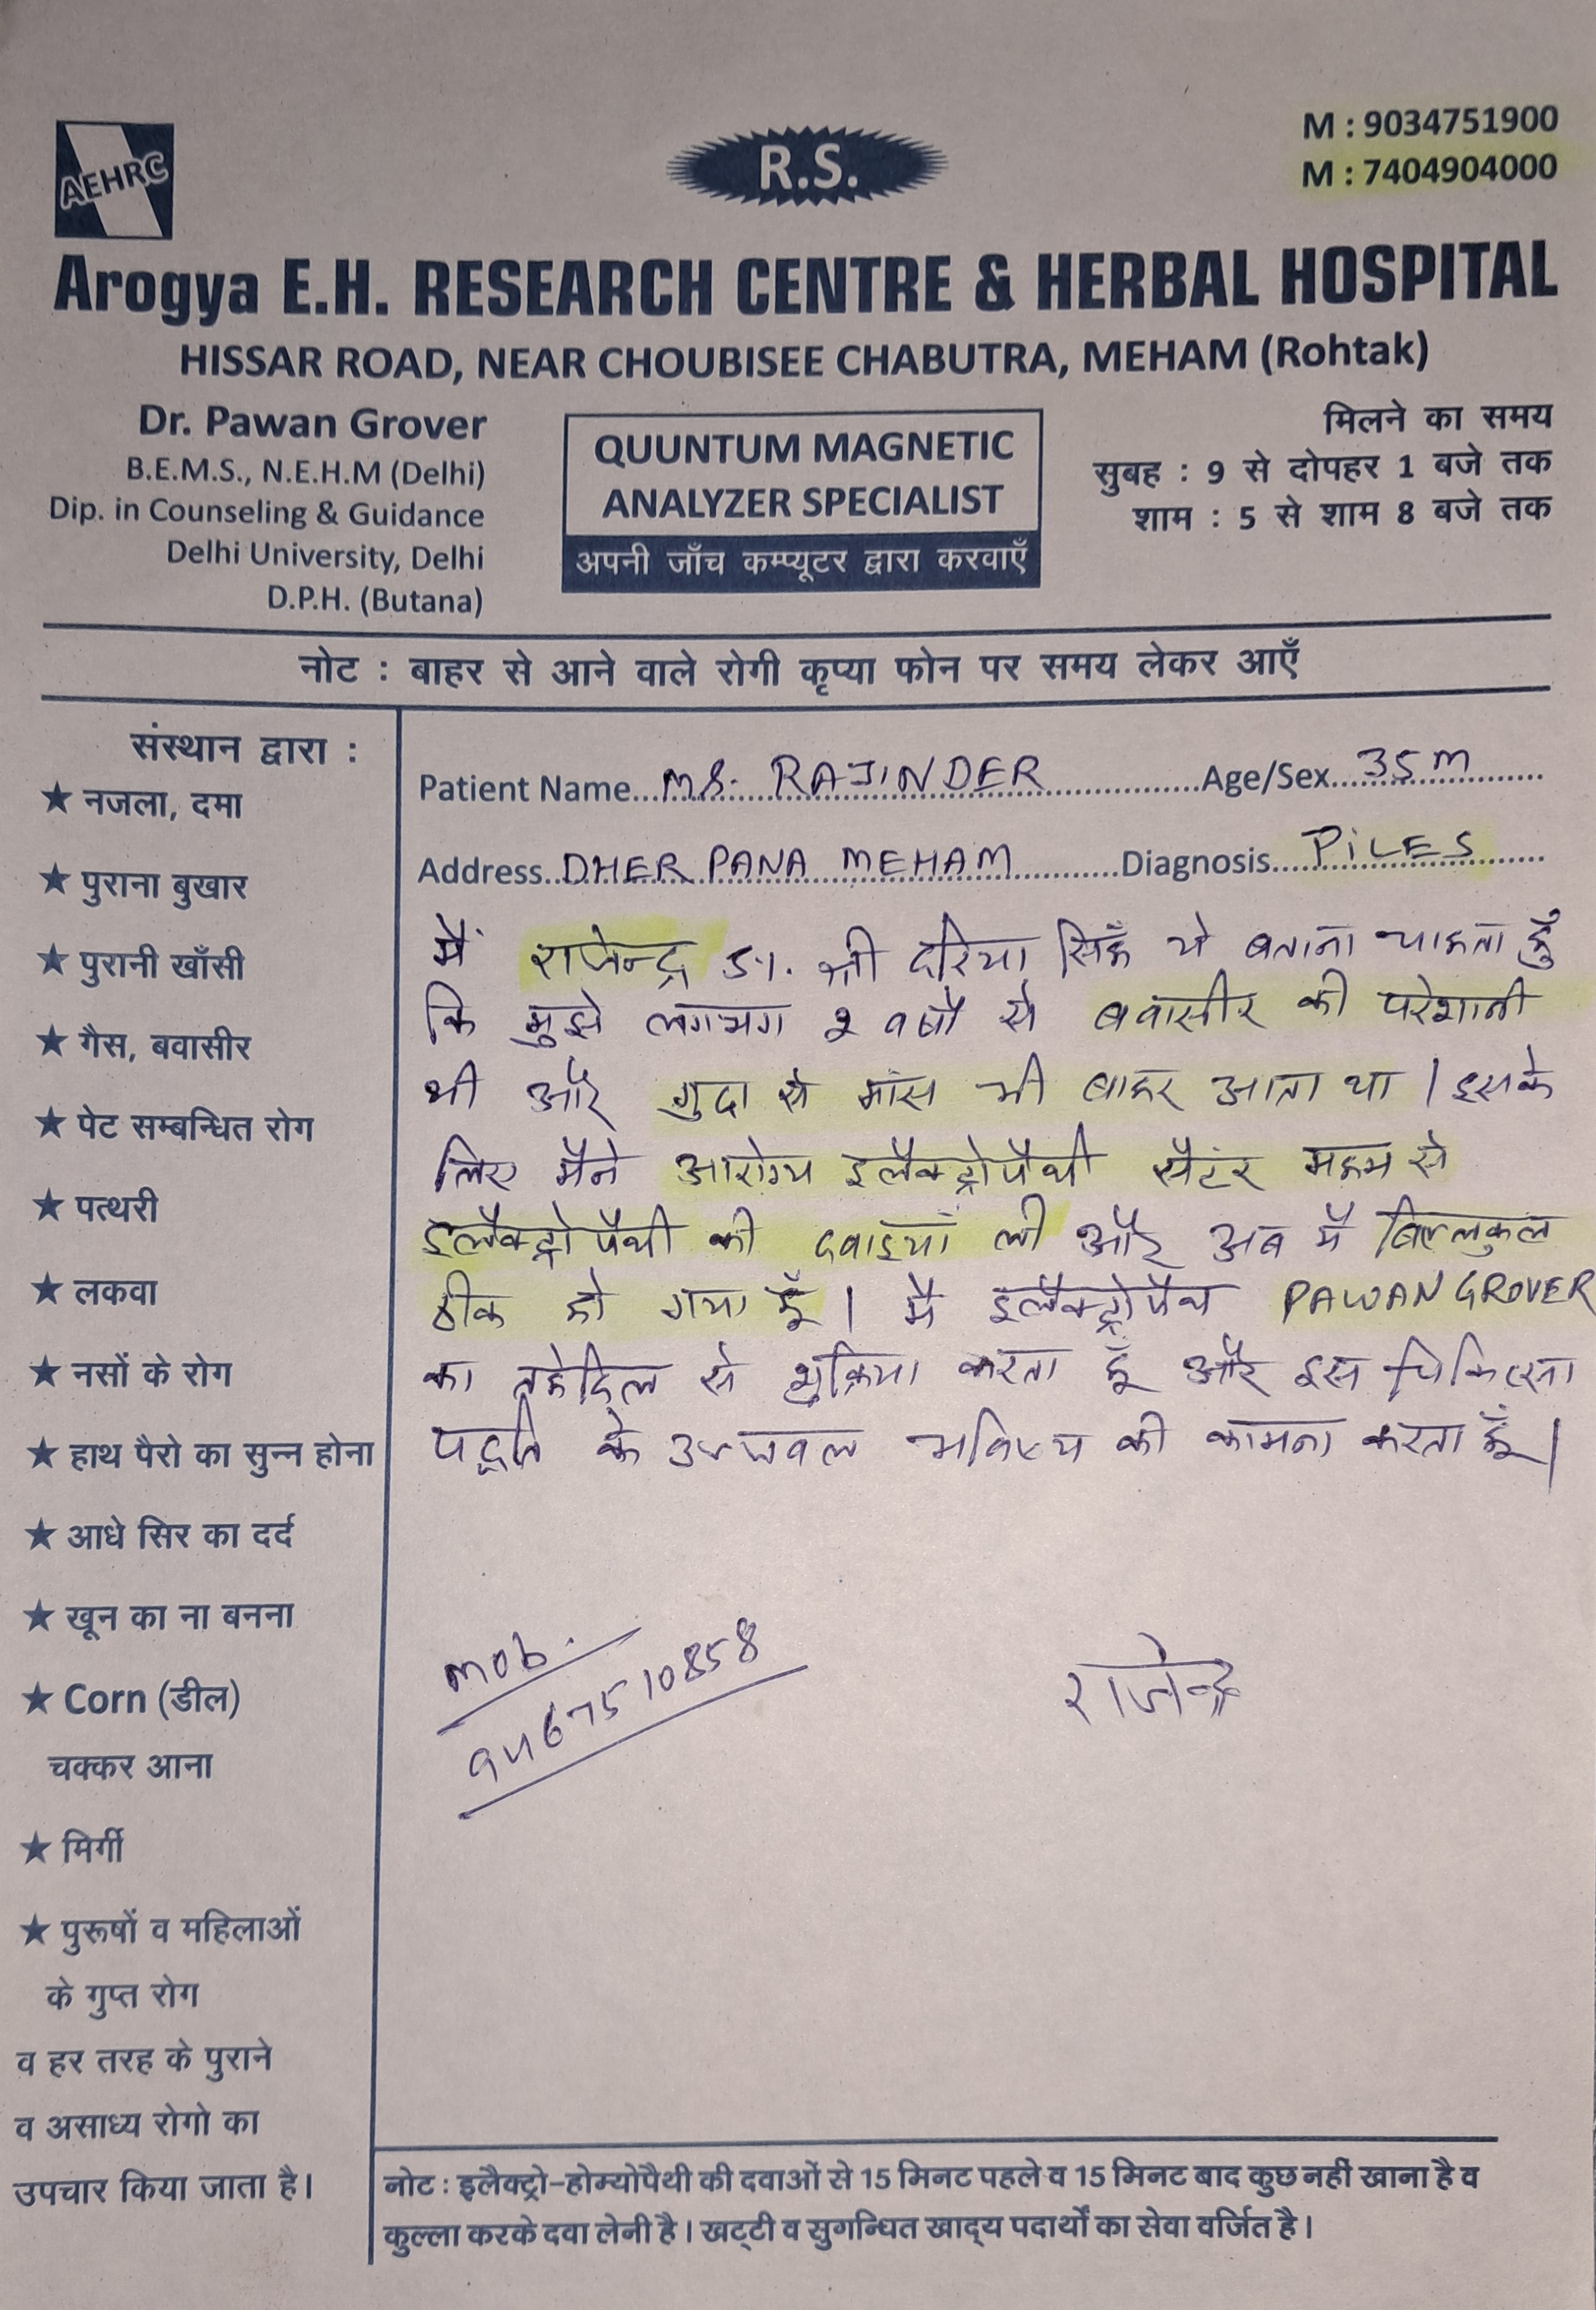 AEHRC
R.S.
M : 9034751900
M : 7404904000
Arogya E.H. RESEARCH CENTRE & HERBAL HOSPITAL
HISSAR ROAD, NEAR CHOUBISEE CHABUTRA, MEHAM (Rohtak)
Dr. Pawan Grover
B.E.M.S., N.E.H.M (Delhi)
Dip. in Counseling & Guidance
Delhi University, Delhi
D.P.H. (Butana)
QUUNTUM MAGNETIC
ANALYZER SPECIALIST
अपनी जाँच कम्प्यूटर द्वारा करवाएँ
मिलने का समय
सुबह : 9 से दोपहर 1 बजे तक
शाम : 5 से शाम 8 बजे तक
नोट : बाहर से आने वाले रोगी कृप्या फोन पर समय लेकर आएँ
संस्थान द्वारा :
★ नजला, दमा
★ पुराना बुखार
★ पुरानी खाँसी
★ गैस, बवासीर
★ पेट सम्बन्धित रोग
★ पत्थरी
★ लकवा
★ नसों के रोग
★ हाथ पैरो का सुन्न होना
★ आधे सिर का दर्द
★ खून का ना बनना
★ Corn (डील)
चक्कर आना
★ मिर्गी
★ पुरूषों व महिलाओं
के गुप्त रोग
व हर तरह के पुराने
व असाध्य रोगो का
उपचार किया जाता है।
Patient Name...MR. RAJINDER...Age/Sex...35 M...
Address..DHER PANA MEHAM...Diagnosis...PILES...
मैं राजेन्द्र S/. श्री दरिया सिंह ये बताना चाहता हूँ
कि मुझे लगभग 2 वर्षो से बवासीर की परेशानी
थी और गुदा से मांस भी बाहर आता था । इसके
लिए मैने आरोग्य इलैक्ट्रोपैथी सैंटर महम से
इलैक्ट्रोपैथी की दवाइयाँ ली और अब मैं बिल्लकुल
ठीक हो गया हूँ । मै इलैक्ट्रोपैथ PAWAN GROVER
का तहेदिल से शुक्रिया करता हूँ और इस चिकित्सा
पद्दति के उज्जवल भविष्य की कामना करता हूँ ।
mob.
9467510858
राजेन्द्र
नोट : इलैक्ट्रो-होम्योपैथी की दवाओं से 15 मिनट पहले व 15 मिनट बाद कुछ नहीं खाना है व
कुल्ला करके दवा लेनी है । खट्टी व सुगन्धित खाद्य पदार्थों का सेवा वर्जित है ।